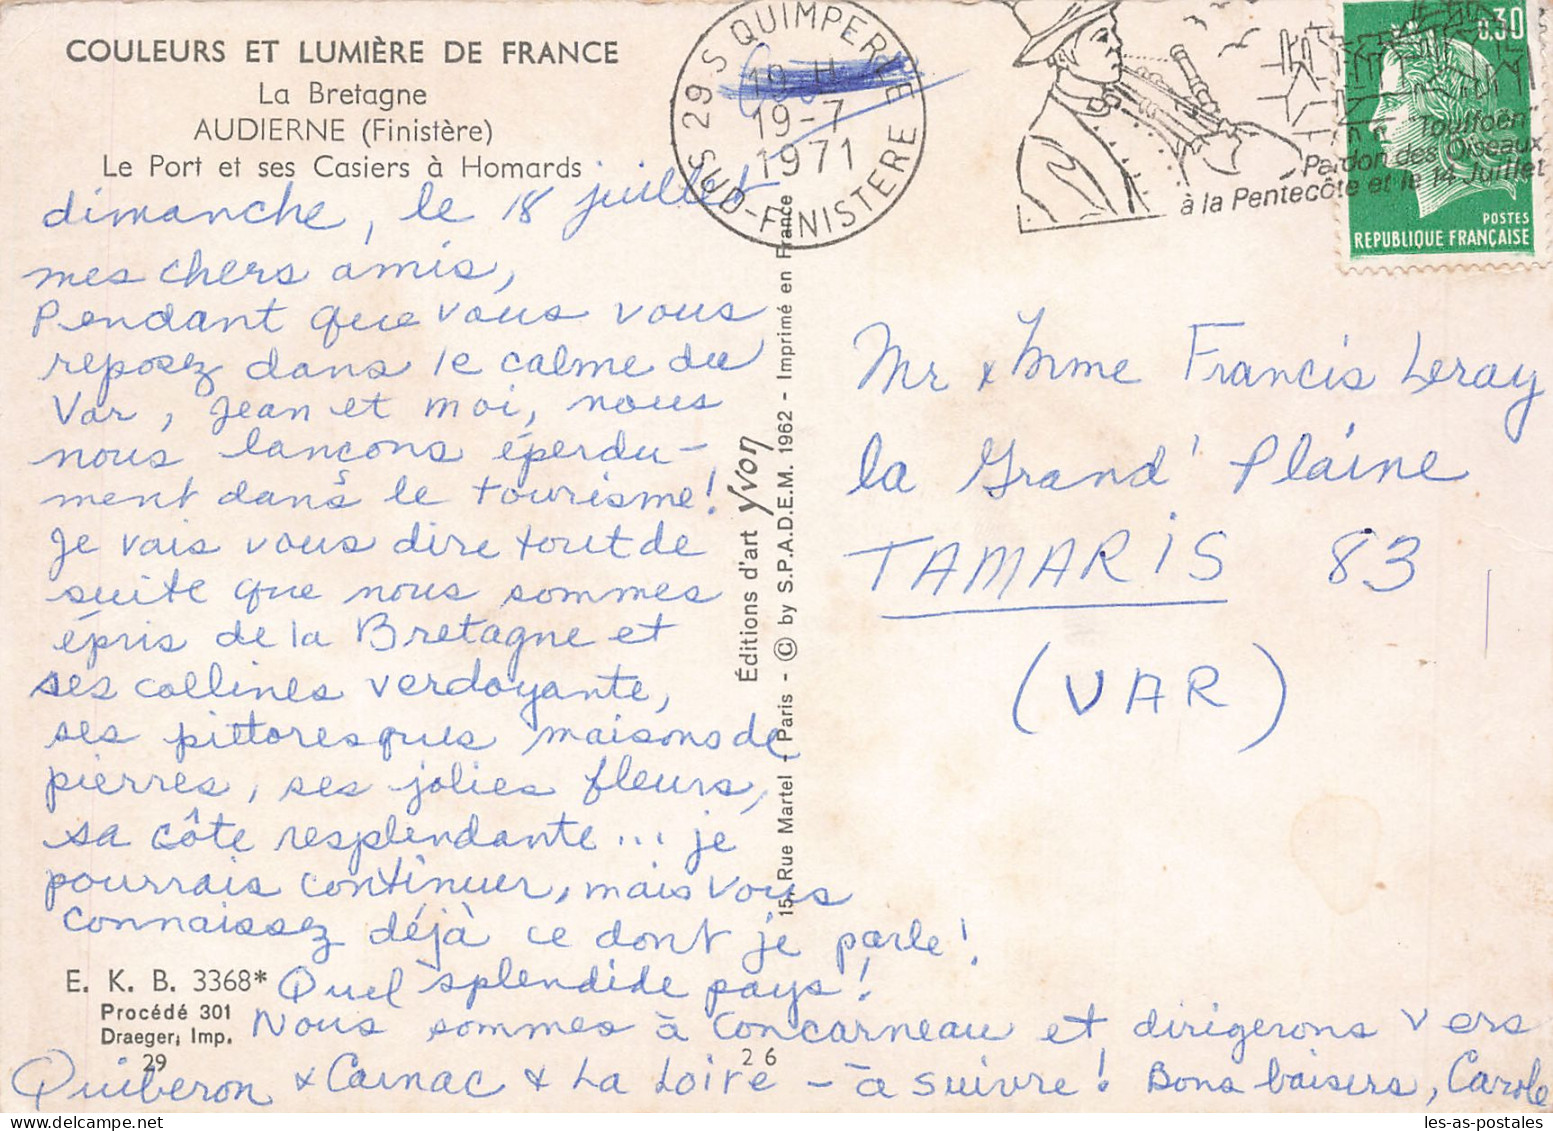 COULEURS ET LUMIÈRE DE FRANCE
La Bretagne
AUDIERNE (Finistère)
Le Port et ses Casiers à Homards
29 S QUIMPERLE
19 H
19-7
1971
SUD-FINISTERE
"Toulfoën"
Pardon des Oiseaux
à la Pentecôte et le 14 Juillet
0.30
POSTES
REPUBLIQUE FRANÇAISE
dimanche, le 18 juillet
mes chers amis,
Pendant que vous vous
reposez dans le calme du
Var, Jean et moi, nous
nous lançons éperdu-
ment dans le tourisme!
Je vais vous dire tout de
suite que nous sommes
épris de la Bretagne et
ses collines verdoyante,
ses pittoresques maisons de
pierres, ses jolies fleurs,
sa côte resplendante... je
pourrais continuer, mais vous
connaissez déjà ce dont je parle!
Quel splendide pays!
Nous sommes à Concarneau et dirigerons vers
Quiberon & Carnac & La Loire - à suivre! Bons baisers, Carole
E. K. B. 3368*
Procédé 301
Draeger, Imp.
29
26
Éditions d'art yvon
15, Rue Martel - Paris - © by S.P.A.D.E.M. 1962 - Imprimé en France
Mr & Mme Francis Leray
la Grand' Plaine
TAMARIS 83
(VAR)
les-as-postales